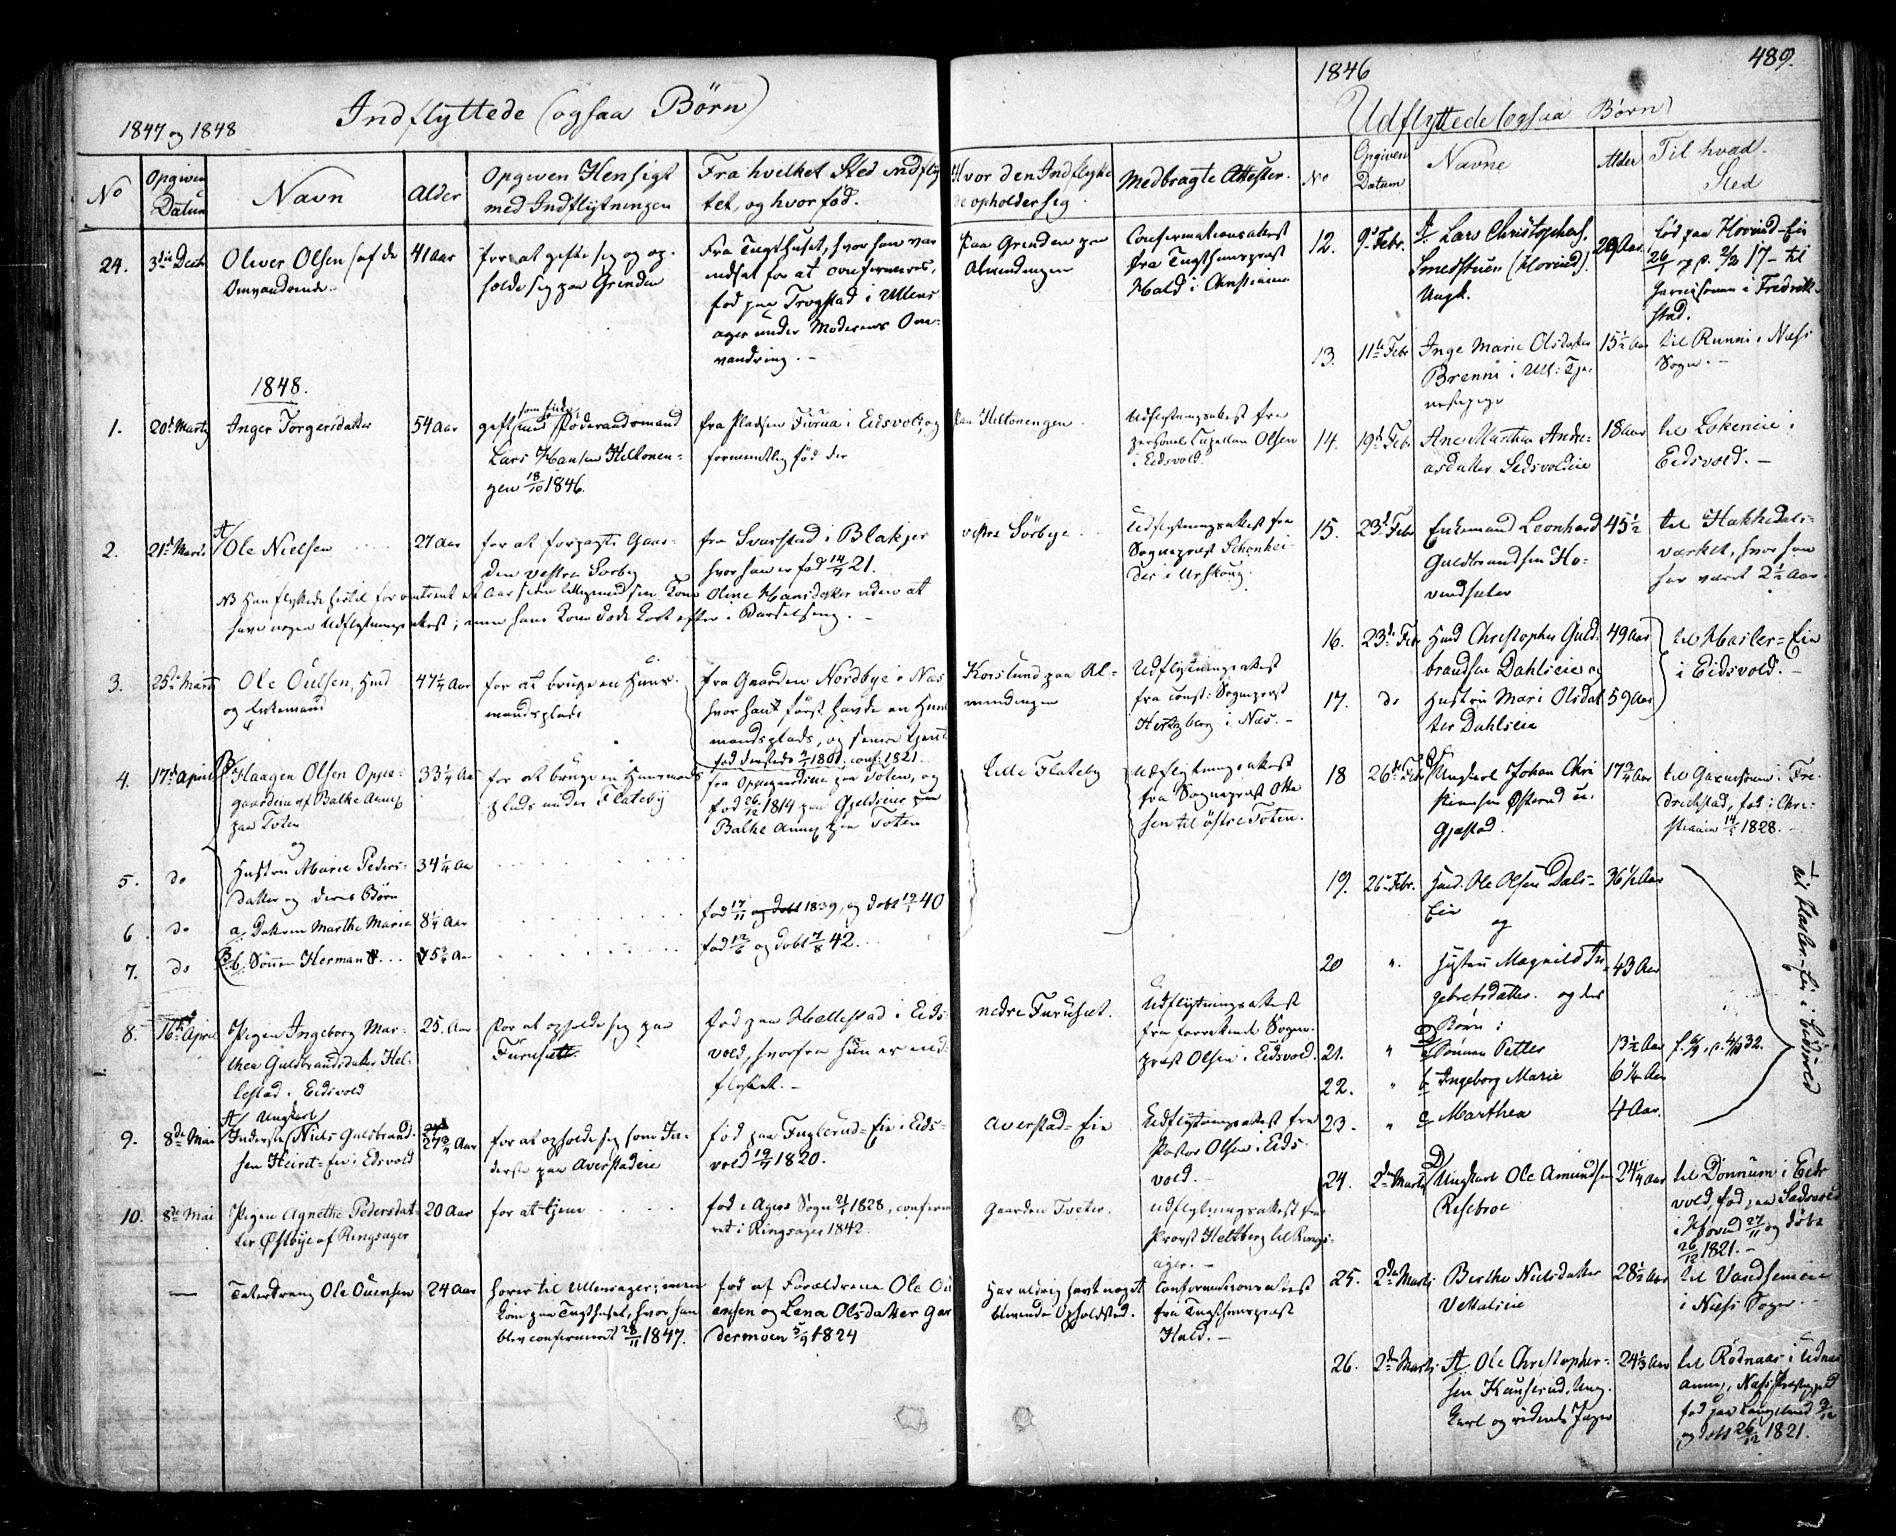 489.
1847 og 1848
Indflyttede (ogsaa Børn)
No
Opgiven Datum
Navn
Alder
Opgiven Hensigt med Indflytningen
Fra hvilket Sted indflyttet, og hvor fød.
Hvor den Indflyttede opholder sig.
Medbragte Attester.
24.
3die Decbr
Oliver Olsen (af de
Omvandrende
41 Aar
for at gifte sig og op-
holde sig paa Grinden
Fra Tugthuset, hvor han var
indsat for at confirmeres,
fød paa Trogstad i Ullens-
ager under Moderens Om-
vandring. –
Paa Grinden paa
Almindingen
Confirmationsattest
fra Tugthuuspræst
Hald i Christiania
1848.
1.
20de Marts
Inger Torgersdatter
54 Aar
gift med Føderaadsmand
Lars Hansen Hiltonen-
gen 18/10 1846.
fra Pladsen Furua i Eidsvold, og
formentlig fød der
Paa Hiltonengen
Udflytningsattest fra
personel Capellan Olsen
i Eidsvold.
2.
21de Marts
A/ Ole Nielsen
27 Aar
for at forpagte Gaar-
den vestre Sørby
fra Svarstad i Blakjer
hvor han er fød 14/7 21.
vestre Sörbye
Udflytningsattest fra
Sognepræst Schonhei-
der i Urskoug.
NB Han flyttede hertil for omtrent et Aar siden tilligemed sin Kone Oline Hansdatter uden at
have nogen Udflytningsattest; men hans Kone døde kort efter i Barselseng. –
3.
25de Marts
Ole Oulsen, Huusmd
og Enkemand
47 1/4 Aar
for at bruge en Huus-
mandsplads
fra Gaarden Nordbye i Næs
hvor han først havde en Huus-
mandsplads, og senere tjent
fød dersteds 1801, conf. 1821
Korslund paa Al-
mindingen
Udflytningsattest
fra const: Sognepræst
Hertzberg i Næs. –
4.
17de April
Haagen Olsen Oppe-
gaardeie af Balke Annex
paa Toten
og
33 1/4 Aar
for at bruge en Huusmands-
plads under Flateby
fra Oppegaardeie paa Toten, og
fød 26/12 1814 paa Gjeldseie paa
Balke Annex paa Toten
Lille Flateby
Udflytningsattest
fra Sognepræst Otte-
sen til östre Toten.
5.
do
Hustru Marie Peders-
datter og deres Børn
34 1/4 Aar
6.
do
a, Datteren Marthe Marie
8 1/4 Aar
fød 17/11 og døbt 1839, og døbt 19/1 40
7.
do
b, Sønnen Herman
5 3/4 Aar
fød 12/6 og døbt 7/8 42.
8.
16de April
Pigen Ingeborg Mar-
thea Guldbrandsdatter Hel-
lestad i Eidsvold
25. Aar
For at opholde sig paa
Furusætt.
fød paa Hællestad i Eids-
vold, hvorfra hun er ind-
flyttet. –
nedre Furuset.
Udflytningsattest
fra forrettende Sogne-
præst Olsen i Eidsvold.
9.
8de Mai
A/ Ungkarl
Inderste Niels Guldbrand-
sen Heiret-Eie i Edsvold
27 3/4 Aar
for at opholde sig som In-
derste paa Averstadeie
fød paa Fuglerud-Eie i Eids-
vold 19/7 1820.
Averstad-Eie
Udflytningsattest fra
Pastor Olsen i Eids-
vold. –
10.
8de Mai
Pigen Agnethe Pedersdat-
ter Østbye af Ringsager
20 Aar
for at tjene
fød i Agers Sogn 21/1 1828, confirme-
ret i Ringsager 1842.
Gaarden Tveter.
Udflytningsattest fra
Provst Heltberg til Rings-
ager. –
—
Taterdreng Ole Ouensen
24 Aar
hører til Ullensager; men
kom paa Tugthuset, hvor han
blev confirmeret 28/11 1847.
fød af Forældrene Ole Ou-
ensen og Lena Olsdatter Gar-
dermoen 5/9 1824
Har aldrig havt noget
blivende Opholdsted.
Confirmationsattest
fra Tugthuuspræst
Hald. –
1846
Udflyttede (ogsaa Børn)
No
Opgiven Datum
Navne
Alder
Til hvad Sted
12.
9de Febr.
A. Lars Christophers.
Smedstuen (Hovind).
Ungk.
29 Aar.
fød paa Hovind-Eie
26/1 17 – til
Garnisonen i Fredrik-
stad.
13.
11te Febr
Inge Marie Olsdatter
Brenni i Ull: Tje-
nestepige
15 1/2 Aar
til Runni i Næss
Sogn. –
14.
19de Febr
Ane Marthea Andre-
asdatter Sedsvoldeie
18 Aar
til Løkeneie i
Eidsvold. –
15.
23de Febr
Enkemand Leonhard
Guldbrandsen Ho-
vindsæter
45 1/2
til Hakkedals-
værket, hvor han
har været 2 1/2 Aar.
16.
23de Febr
Husmd Christopher Guld-
brandsen Dahlseie og
49 Aar
til Hasler-Eie
i Eidsvold. –
17.
do
Hustru Mari Olsdat-
ter Dahlseie
59 Aar
18
26de Febr
Ungkarl Johan Chri-
stiansen Østerud u.
Gjestad.
17 3/4 Aar
til Garnisonen i Fre-
drickstad, fød i Chri-
stiania 14/5 1828. –
19.
26de Febr.
Husmd. Ole Olsen Dals-
Eie
og
36 1/2 Aar
til Hasler-Eie i Eidsvold
20
"
Hustru Magnild In-
gebretsdatter. og deres
Børn:
43 Aar
21.
"
a Sønnen Petter
13 1/2 Aar
22.
"
b Ingeborg Marie
6 1/4 Aar
23.
"
c Marthea
4 Aar.
24.
2den Marts
Ungkarl Ole Amundsen
Risebroe
24 1/4 Aar
til Dønnum i Eids-
vold, fød paa Sedsvold
i Hovind 27/11 og døbt
26/12 1821. –
25.
2den Marts
Berthe Nielsdatter
Vettalseie
28 1/2 Aar
til Vandsemeie
i Næss Sogn. –
26.
2den Marts
A, Ole Christopher-
sen Kauserud, Ung-
karl og ridende Jæger
24 1/3 Aar
til Rödnaas i Udnæs
Annex, Næss Præstegjeld
fød paa Langelund 2/12
og døbt 26/12 1821.